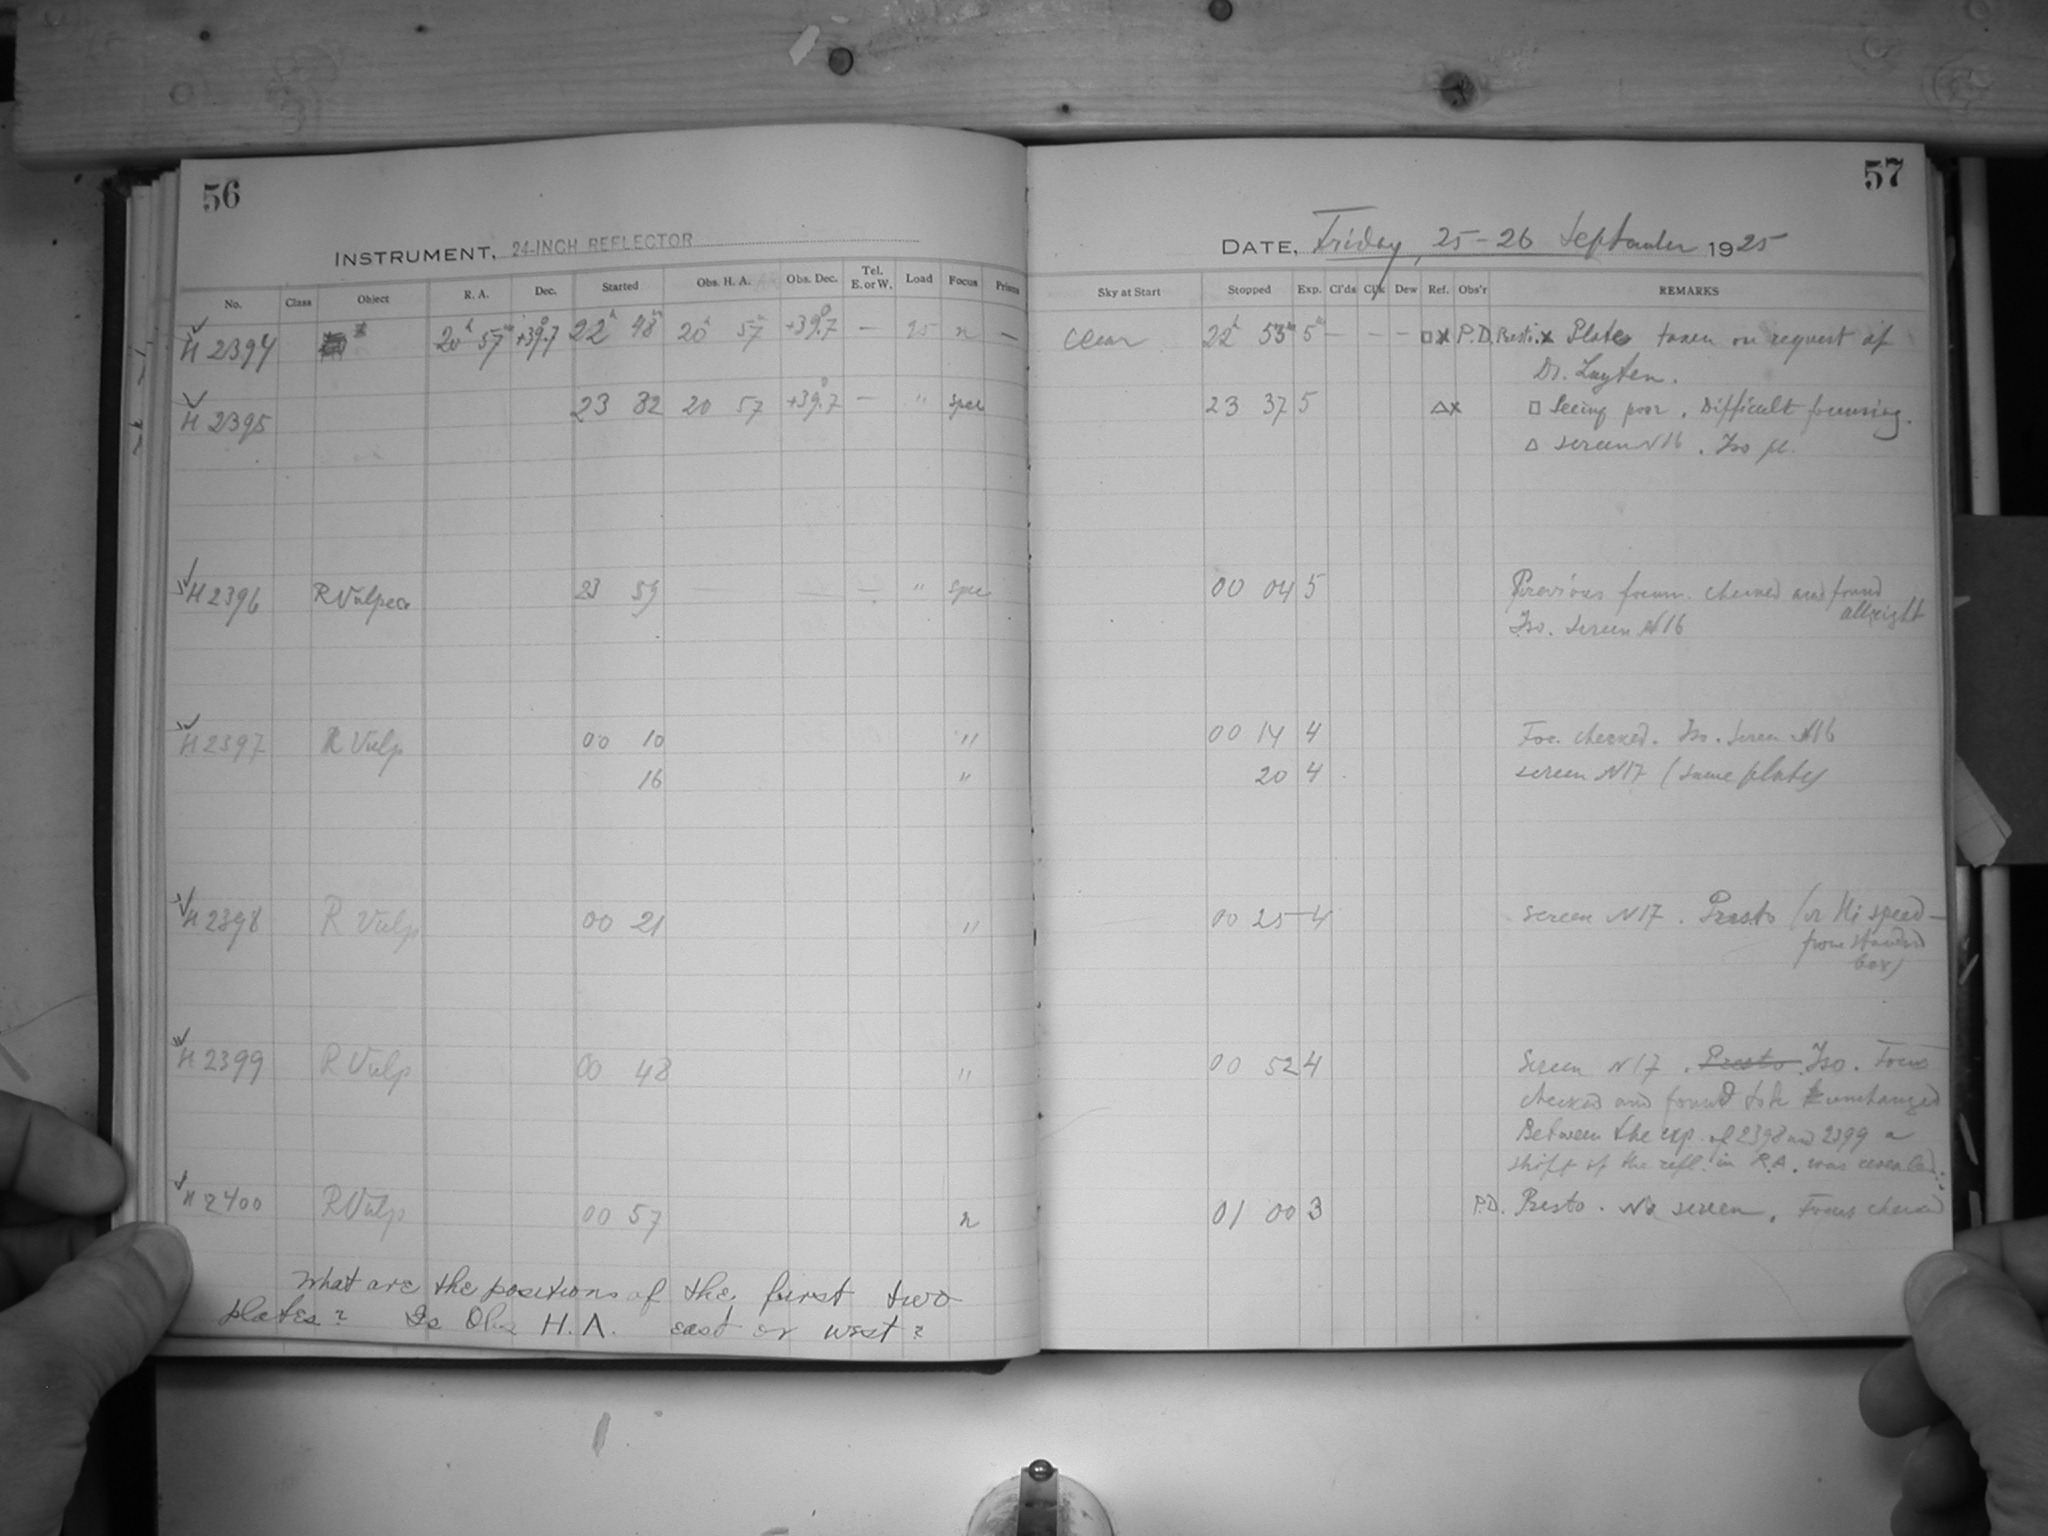 56
INSTRUMENT, 24-INCH REFLECTOR
No. Class Object R. A. Dec. Started Obs. H. A. Obs. Dec. Tel. E. or W. Load Focus Prism
H 2394 20h 57m +39°.7 22h 48m 20h 57m +39°.7 — 25 n —
H 2395 23 32 20 57 +39°.7 — " spec
H 2396 R Vulpec 23 59 — — — " spec
H 2397 R Vulp 00 10 "
16 "
H 2398 R Vulp 00 21 "
H 2399 R Vulp 00 48 "
H 2400 R Vulp 00 57 n
What are the positions of the first two
plates? Is Obs H.A. east or west?
57
DATE, Friday, 25-26 September 1925
Sky at Start Stopped Exp. Cl'ds Cl'k Dew Ref. Obs'r REMARKS
Clear 22h 53m 5m — — — □x P.D. Presto. x Plates taken on request of
Dr. Luyten.
23 37 5 △x □ Seeing poor. Difficult focusing.
△ screen N16. Iso pl.
00 04 5 Previous focus. checked and found
allright
Iso. Screen N16
00 14 4 Foc. checked. Iso. Screen N16
20 4 screen N17 (same plate)
00 25 4 screen N17. Presto (or Hi speed —
from standard
box)
00 52 4 Screen N17. Presto. Iso. Focus
checked and found to be unchanged
Between the exp. of 2398 and 2399 a
shift of the refl. in R.A. was revealed.
01 00 3 P.D. Presto. No screen. Focus checked